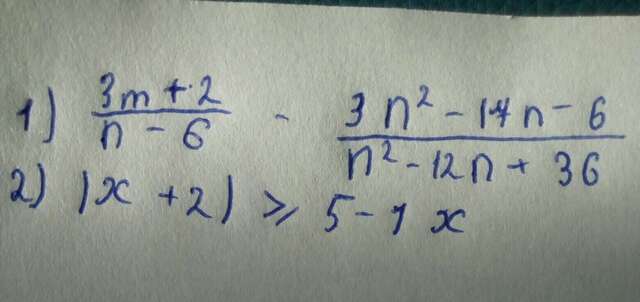 1) (3m + 2)/(n - 6) - (3n² - 17n - 6)/(n² - 12n + 36)
2) |x + 2| ⩾ 5 - 1x